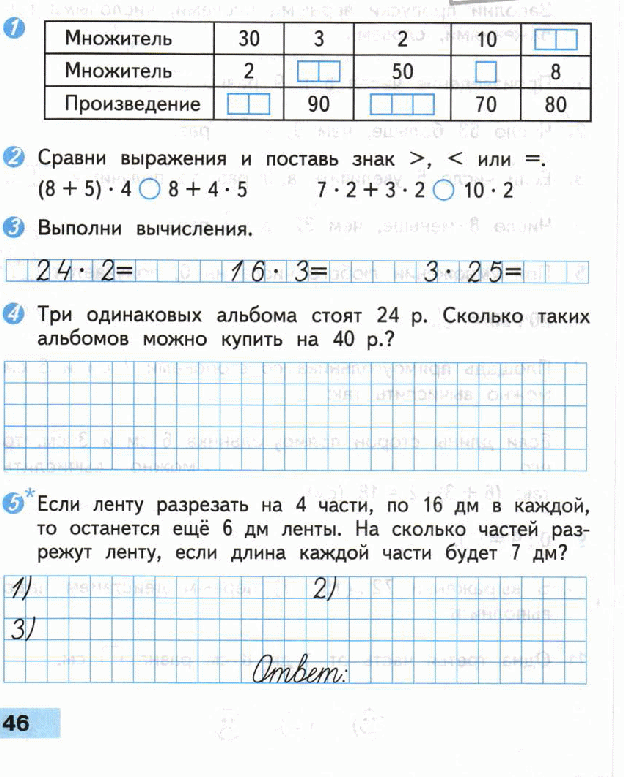 1
Множитель 30 3 2 10
Множитель 2 50 8
Произведение 90 70 80
2 Сравни выражения и поставь знак >, < или =.
(8 + 5) · 4 ○ 8 + 4 · 5 7 · 2 + 3 · 2 ○ 10 · 2
3 Выполни вычисления.
24 · 2= 16 · 3= 3 · 25=
4 Три одинаковых альбома стоят 24 р. Сколько таких
альбомов можно купить на 40 р.?
5* Если ленту разрезать на 4 части, по 16 дм в каждой,
то останется ещё 6 дм ленты. На сколько частей раз-
режут ленту, если длина каждой части будет 7 дм?
1) 2)
3)
Ответ:
46